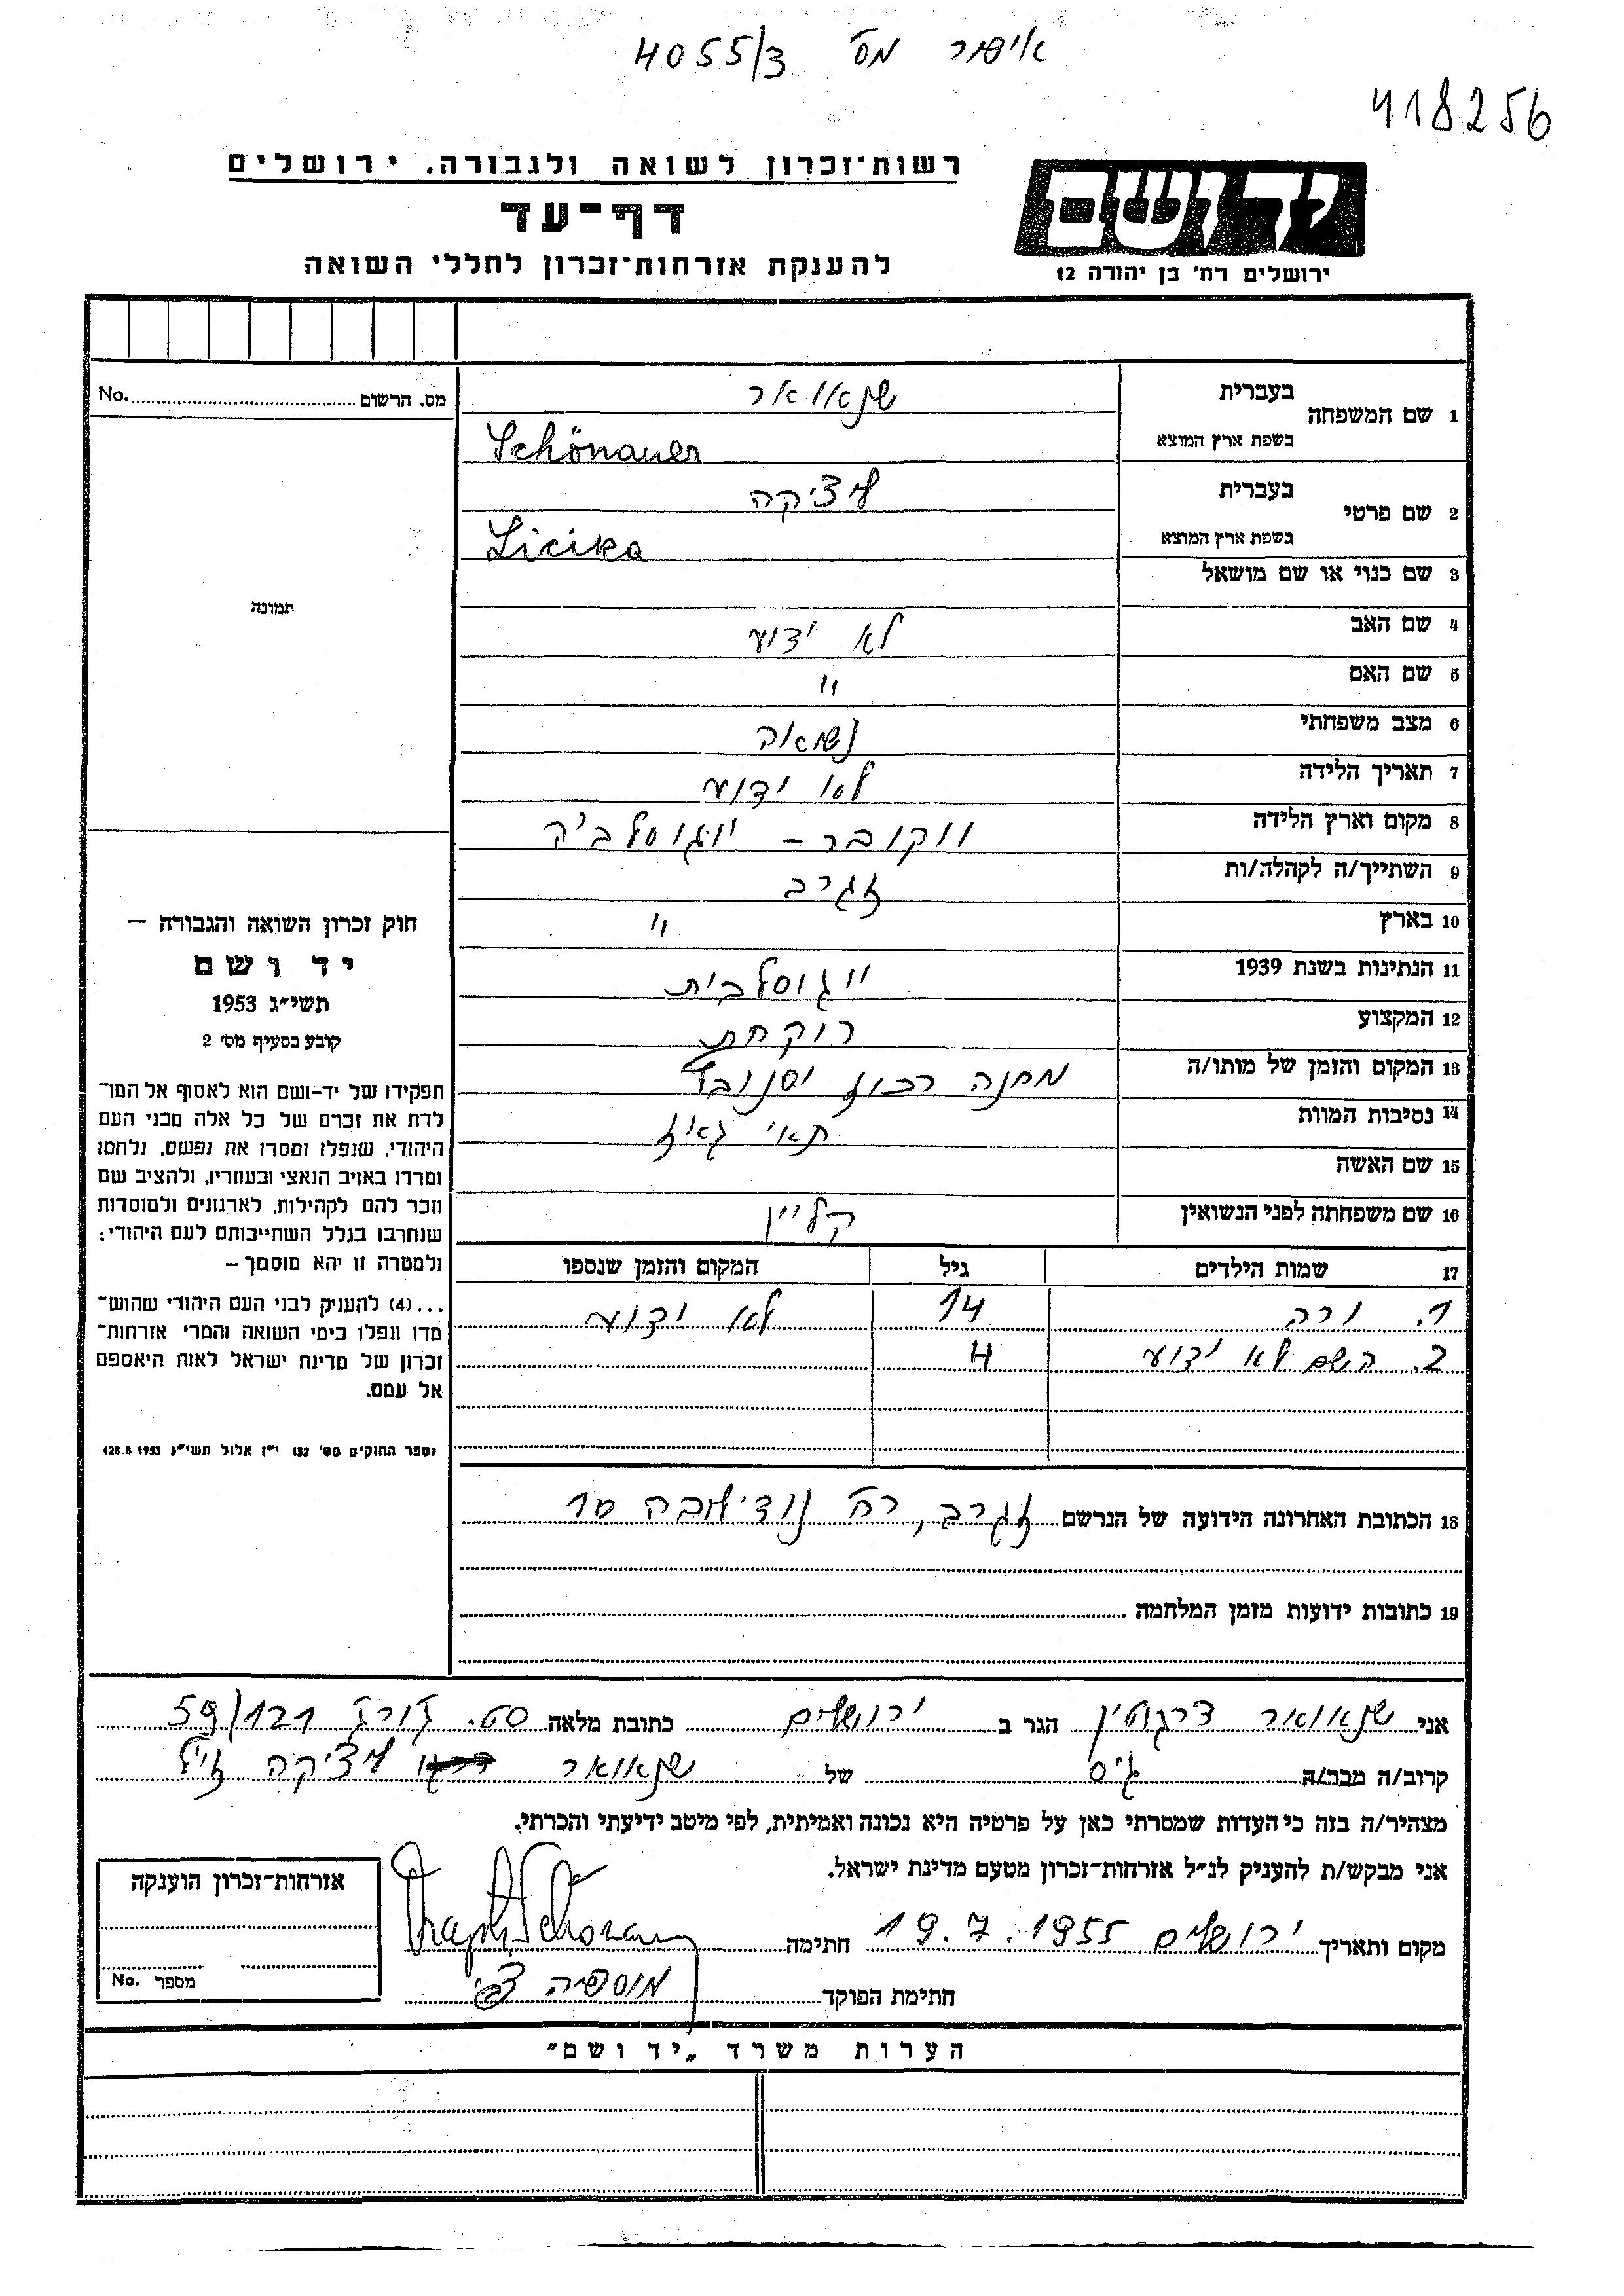 אישור מס' 4055/3
418256
רשות־זכרון לשואה ולגבורה. ירושלים
דף־עד
להענקת אזרחות־זכרון לחללי השואה
יד ושם
ירושלים רח' בן יהודה 12
מס. הרשום No.
תמונה
1 שם המשפחה
בעברית שנאוואר
בשפת ארץ המוצא Schönauer
2 שם פרטי
בעברית ליציקה
בשפת ארץ המוצא Licika
3 שם כנוי או שם מושאל
4 שם האב לא ידוע
5 שם האם "
6 מצב משפחתי נשואה
7 תאריך הלידה לא ידוע
8 מקום וארץ הלידה ווקובר - יוגוסלביה
9 השתייך/ה לקהלה/ות זגרב
10 בארץ "
11 הנתינות בשנת 1939 יוגוסלבית
12 המקצוע רוקחת
13 המקום והזמן של מותו/ה מחנה רכוז
14 נסיבות המוות תאי גאז
15 שם האשה
16 שם משפחתה לפני הנשואין קליין
17 שמות הילדים גיל המקום והזמן שנספו
1. ורה 14 לא ידוע
2. השם לא ידוע 4
18 הכתובת האחרונה הידועה של הנרשם זגרב, רח' 10
19 כתובות ידועות מזמן המלחמה
חוק זכרון השואה והגבורה –
יד ושם
תשי״ג 1953
קובע בסעיף מס' 2
תפקידו של יד-ושם הוא לאסוף אל המו־
לדת את זכרם של כל אלה מבני העם
היהודי, שנפלו ומסרו את נפשם, נלחמו
ומרדו באויב הנאצי ובעוזריו, ולהציב שם
וזכר להם לקהילות, לארגונים ולמוסדות
שנחרבו בגלל השתייכותם לעם היהודי;
ולמטרה זו יהא מוסמך –
...(4) להעניק לבני העם היהודי שהוש־
מדו ונפלו בימי השואה והמרי אזרחות־
זכרון של מדינת ישראל לאות היאספם
אל עמם.
(ספר החוקים מס' 132 י״ז אלול תשי״ג 28.8.1953)
אני שנאוואר דרגוטין הגר ב ירושלים כתובת מלאה סט. ג'ורג' 59/121
קרוב/ה מכר/ה גיס של שנאוואר ליציקה ז״ל
מצהיר/ה בזה כי העדות שמסרתי כאן על פרטיה היא נכונה ואמיתית, לפי מיטב ידיעתי והכרתי.
אני מבקש/ת להעניק לנ״ל אזרחות־זכרון מטעם מדינת ישראל.
מקום ותאריך ירושלים 19.7.1955 חתימה
חתימת הפוקד
אזרחות־זכרון הוענקה
מספר No.
הערות משרד „יד ושם"